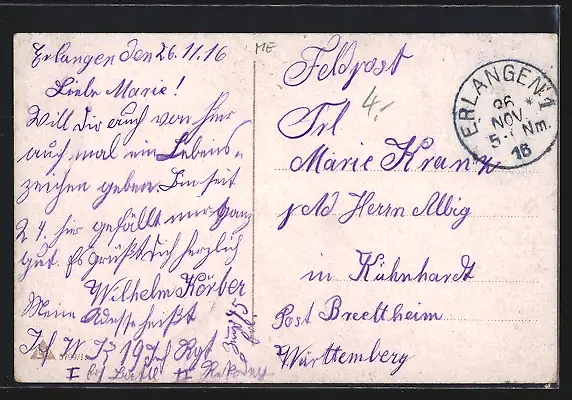 Erlangen den 26.11.16
Liebe Marie!
Will dir auch von hier
auch mal ein Lebens-
zeichen geben. Bin seit
24. hier gefällt mir ganz
gut. Es grüßt dich herzlich
Wilhelm Körber
Meine Adresse heißt
Inf Rgt
I II
ME
Feldpost
4,-
Frl
Marie Kranz
Herrn Albig
in Kühnhardt
Post Brettheim
Württemberg
ERLANGEN * 1
26
NOV.
5-  Nm.
16